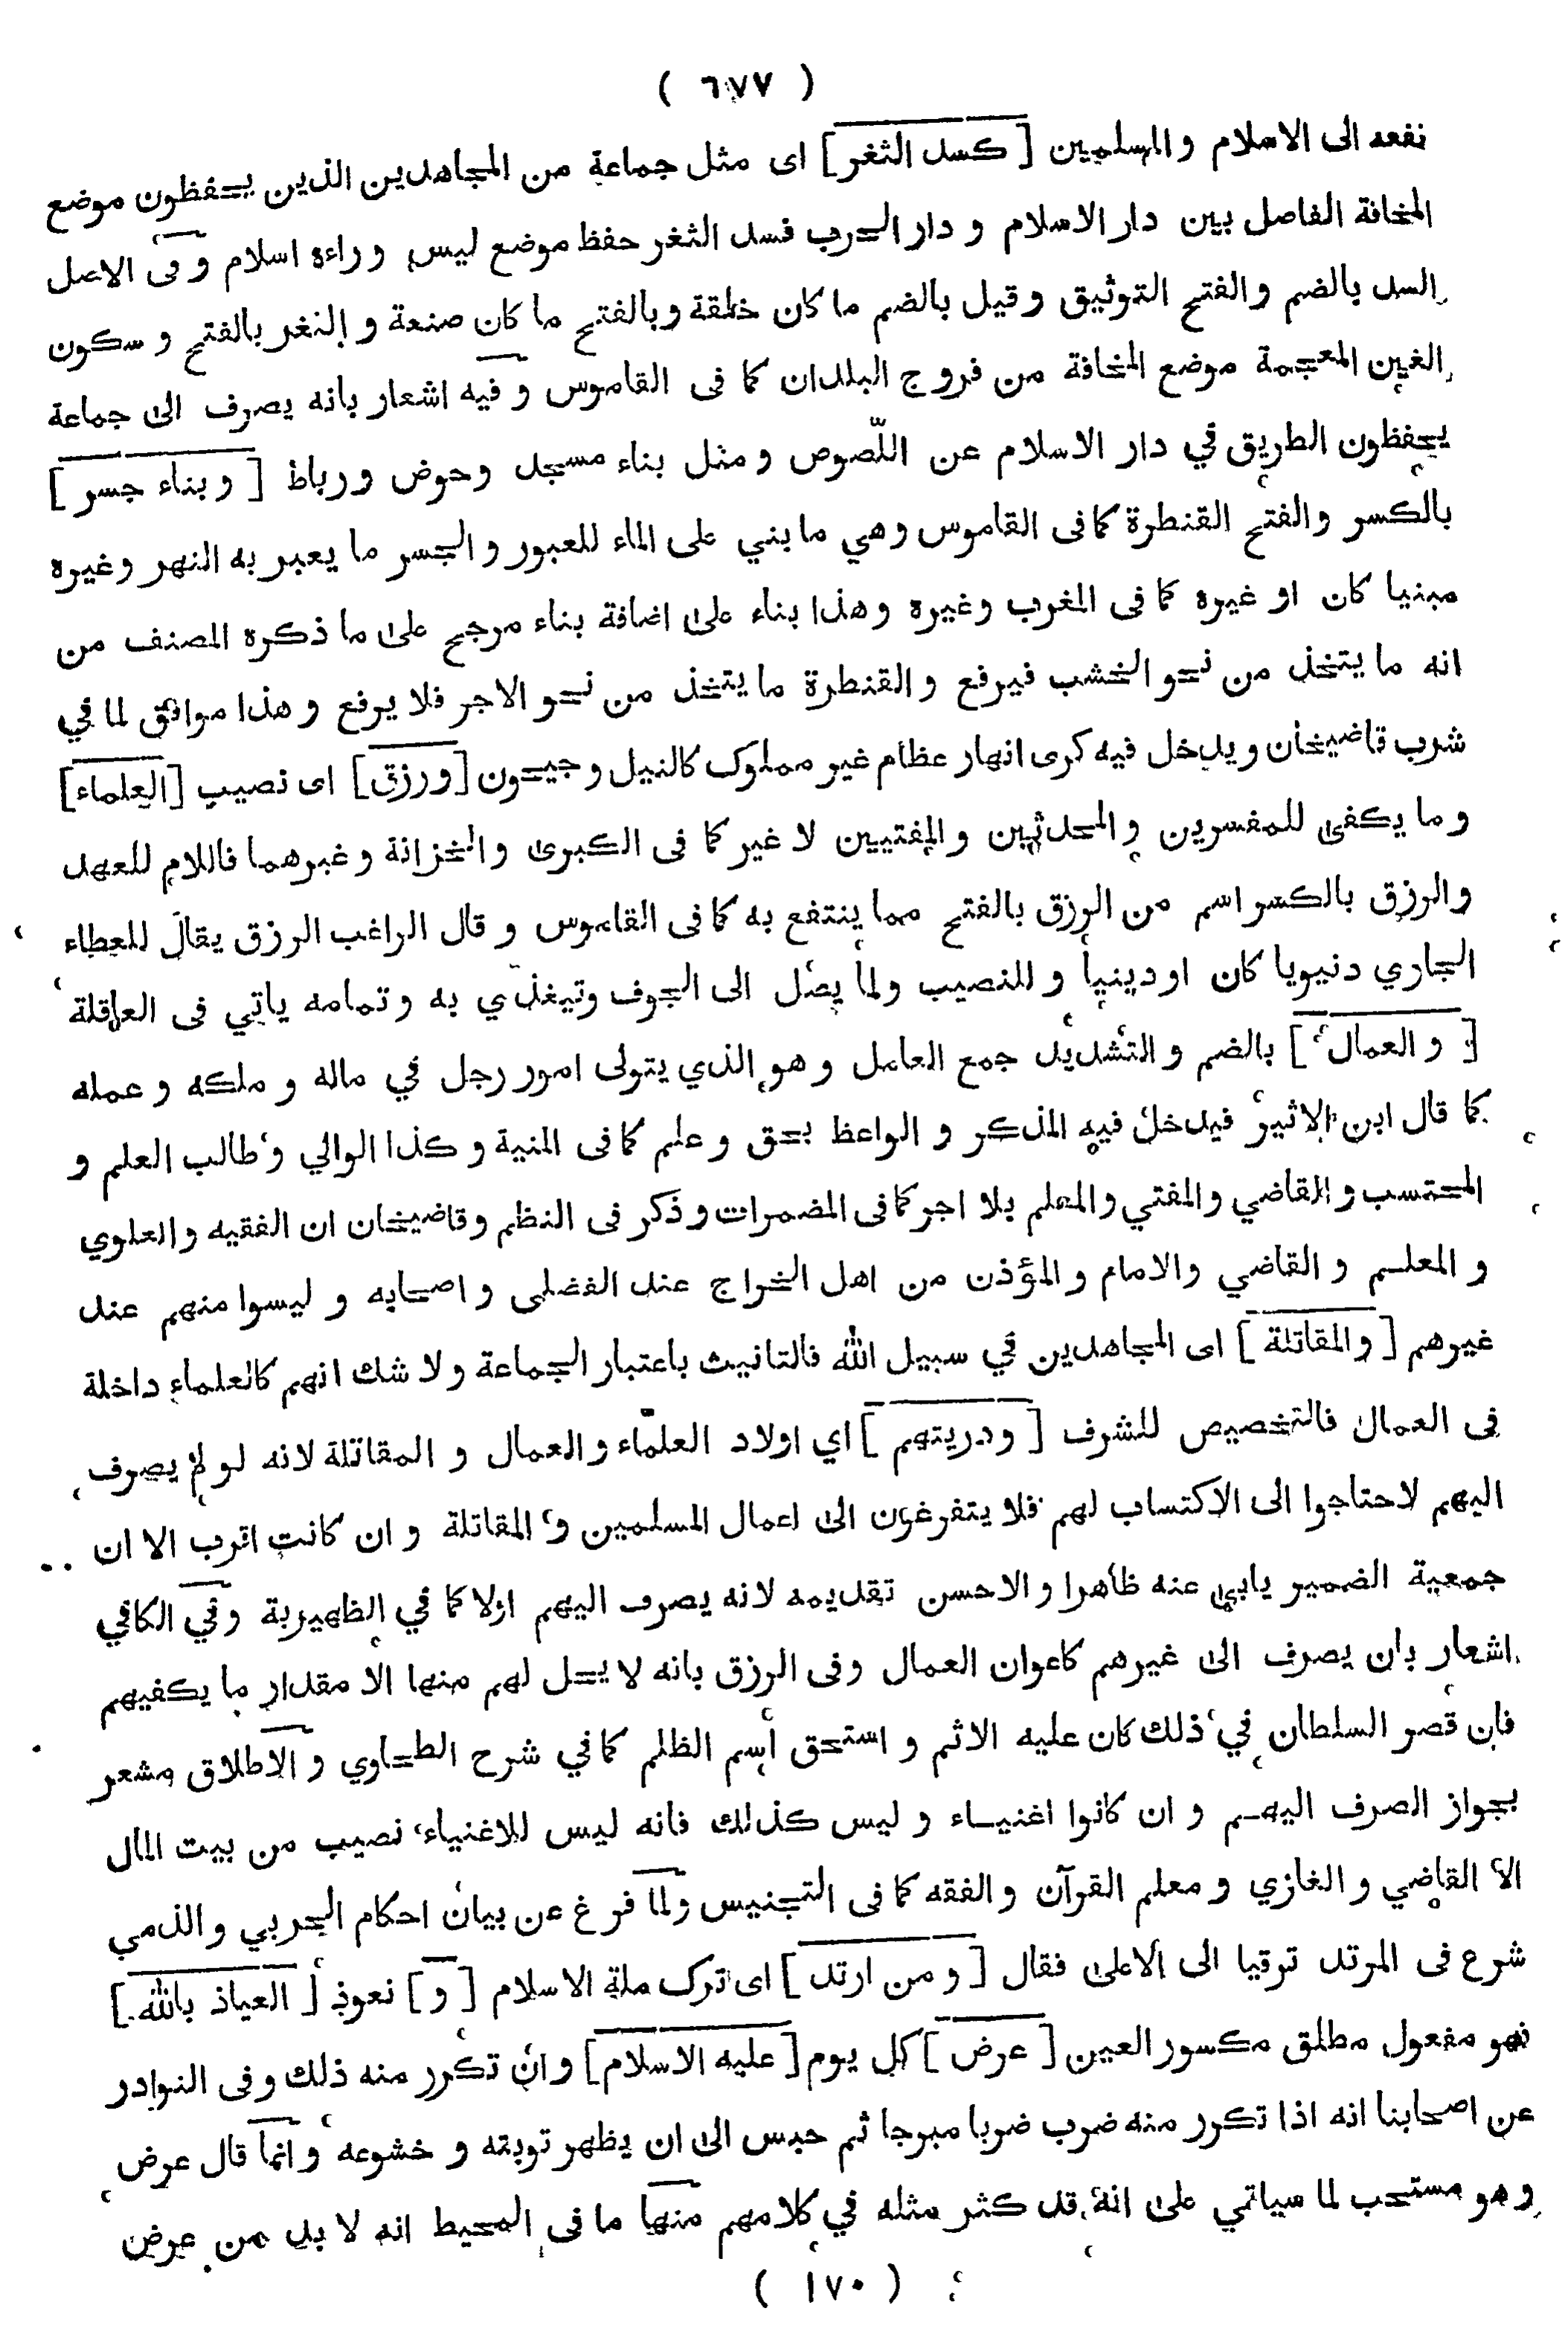 ( ٦٧٧ )
نفعه الى الاسلام والمسلمين [ كسد الثغر ] اى مثل جماعة من المجاهدين الذين يحفظون موضع
المخافة الفاصل بين دار الاسلام و دار الحرب فسد الثغر حفظ موضع ليس وراءه اسلام و فى الاصل
السد بالضم والفتح التوثيق وقيل بالضم ما كان خلقة وبالفتح ما كان صنعة و الثغر بالفتح و سكون
الغين المعجمة موضع المخافة من فروج البلدان كما فى القاموس وفيه اشعار بانه يصرف الى جماعة
يحفظون الطريق في دار الاسلام عن اللّصوص ومثل بناء مسجد وحوض ورباط [ وبناء جسر ]
بالكسر والفتح القنطرة كما فى القاموس وهي ما بني على الماء للعبور والجسر ما يعبر به النهر وغيره
مبنيا كان او غيره كما فى المغرب وغيره وهذا بناء على اضافة بناء مرجح على ما ذكره المصنف من
انه ما يتخذ من نحو الخشب فيرفع والقنطرة ما يتخذ من نحو الاجر فلا يرفع وهذا موافق لما في
شرب قاضيخان ويدخل فيه كرى انهار عظام غير مملوك كالنيل وجيحون [ ورزق ] اى نصيب [ العلماء ]
و ما يكفى للمفسرين والمحدثين والمفتيين لا غير كما فى الكبرى والخزانة وغيرهما فاللام للعهد
والرزق بالكسر اسم من الرزق بالفتح مما ينتفع به كما فى القاموس و قال الراغب الرزق يقال للعطاء
الجاري دنيويا كان او دينيا و للنصيب ولما يصل الى الجوف وتيغذي به و تمامه ياتي فى العاقلة
[ و العمال ] بالضم و التشديد جمع العامل وهو الذي يتولى امور رجل في ماله و ملكه و عمله
كما قال ابن الاثير فيدخل فيه المذكر و الواعظ بحق و علم كما فى المنية و كذا الوالي و طالب العلم و
المحتسب والقاضي والمفتي والمعلم بلا اجر كما فى المضمرات وذكر فى النظم وقاضيخان ان الفقيه والعلوي
و المعلم و القاضي والامام والمؤذن من اهل الخراج عند الفضلى واصحابه و ليسوا منهم عند
غيرهم [ والمقاتلة ] اى المجاهدين في سبيل الله فالتانيث باعتبار الجماعة ولا شك انهم كالعلماء داخلة
فى العمال فالتخصيص للشرف [ ودريتهم ] اي اولاد العلماء والعمال و المقاتلة لانه لو لم يصرف
اليهم لاحتاجوا الى الاكتساب لهم فلا يتفرغون الى اعمال المسلمين و المقاتلة و ان كانت اقرب الا ان
جمعية الضمير يابى عنه ظاهرا والاحسن تقديمه لانه يصرف اليهم اولا كما في الظهيرية وفي الكافي
اشعار بان يصرف الى غيرهم كاعوان العمال وفى الرزق بانه لا يحل لهم منها الا مقدار ما يكفيهم
فان قصر السلطان في ذلك كان عليه الاثم و استحق اسم الظلم كما في شرح الطحاوي و الاطلاق مشعر
بجواز الصرف اليهم و ان كانوا اغنياء و ليس كذلك فانه ليس للاغنياء نصيب من بيت المال
الا القاضي والغازي و معلم القرآن والفقه كما فى التجنيس ولما فرغ عن بيان احكام الحربي والذمي
شرع فى المرتد ترقيا الى الاعلى فقال [ و من ارتد ] اى ترك ملة الاسلام [ و ] نعوذ [ العياذ بالله ]
فهو مفعول مطلق مكسور العين [ عرض ] كل يوم [ عليه الاسلام ] وان تكرر منه ذلك وفى النوادر
عن اصحابنا انه اذا تكرر منه ضرب ضربا مبرحا ثم حبس الى ان يظهر توبته و خشوعه وانما قال عرض
وهو مستحب لما سياتي على انه قد كثر مثله في كلامهم منها ما فى المحيط انه لا بد من عرض
( ١٧٠ )